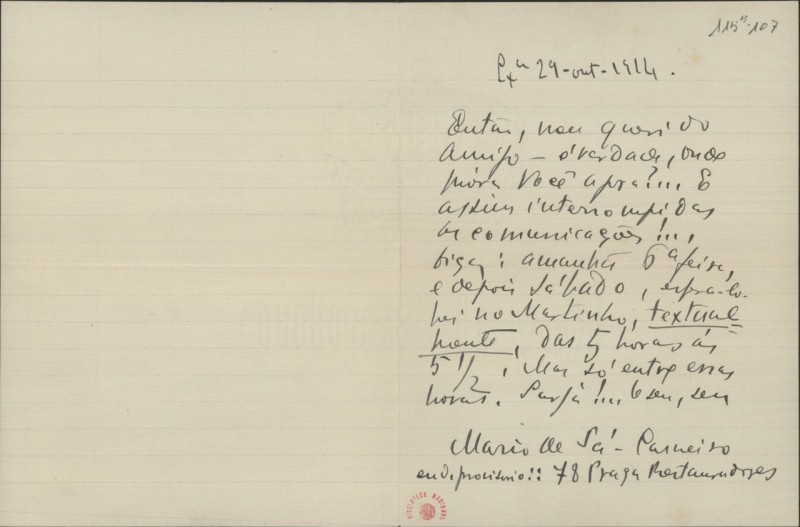 115⁵-107
Lxª 29-out-1914.
Então, meu querido
Amigo – é verdade, onde
móra Você agora?... E
assim interrompidas
as comunicações!...
Diga: amanhã 6ª feira,
e depois Sábado, espera-lo-
hei no Martinho, textual-
mente, das 5 horas ás
5 1/2. Mas só entre essas
horas. Surja!... O seu, seu
Mario de Sá-Carneiro
end. provisorio:: 78 Praça Restauradores
BIBLIOTECA NACIONAL